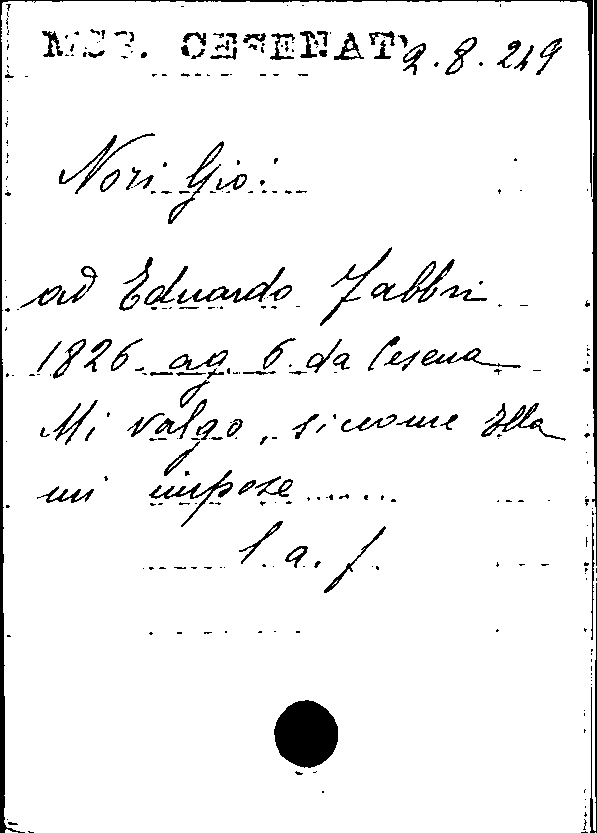 MSS. CESENATI 2.8.249
Nori Gio:
ad Eduardo Fabbri
1826. ag. 6. da Cesena
Mi valgo, siccome Ella
mi impose ......
l. a. f.